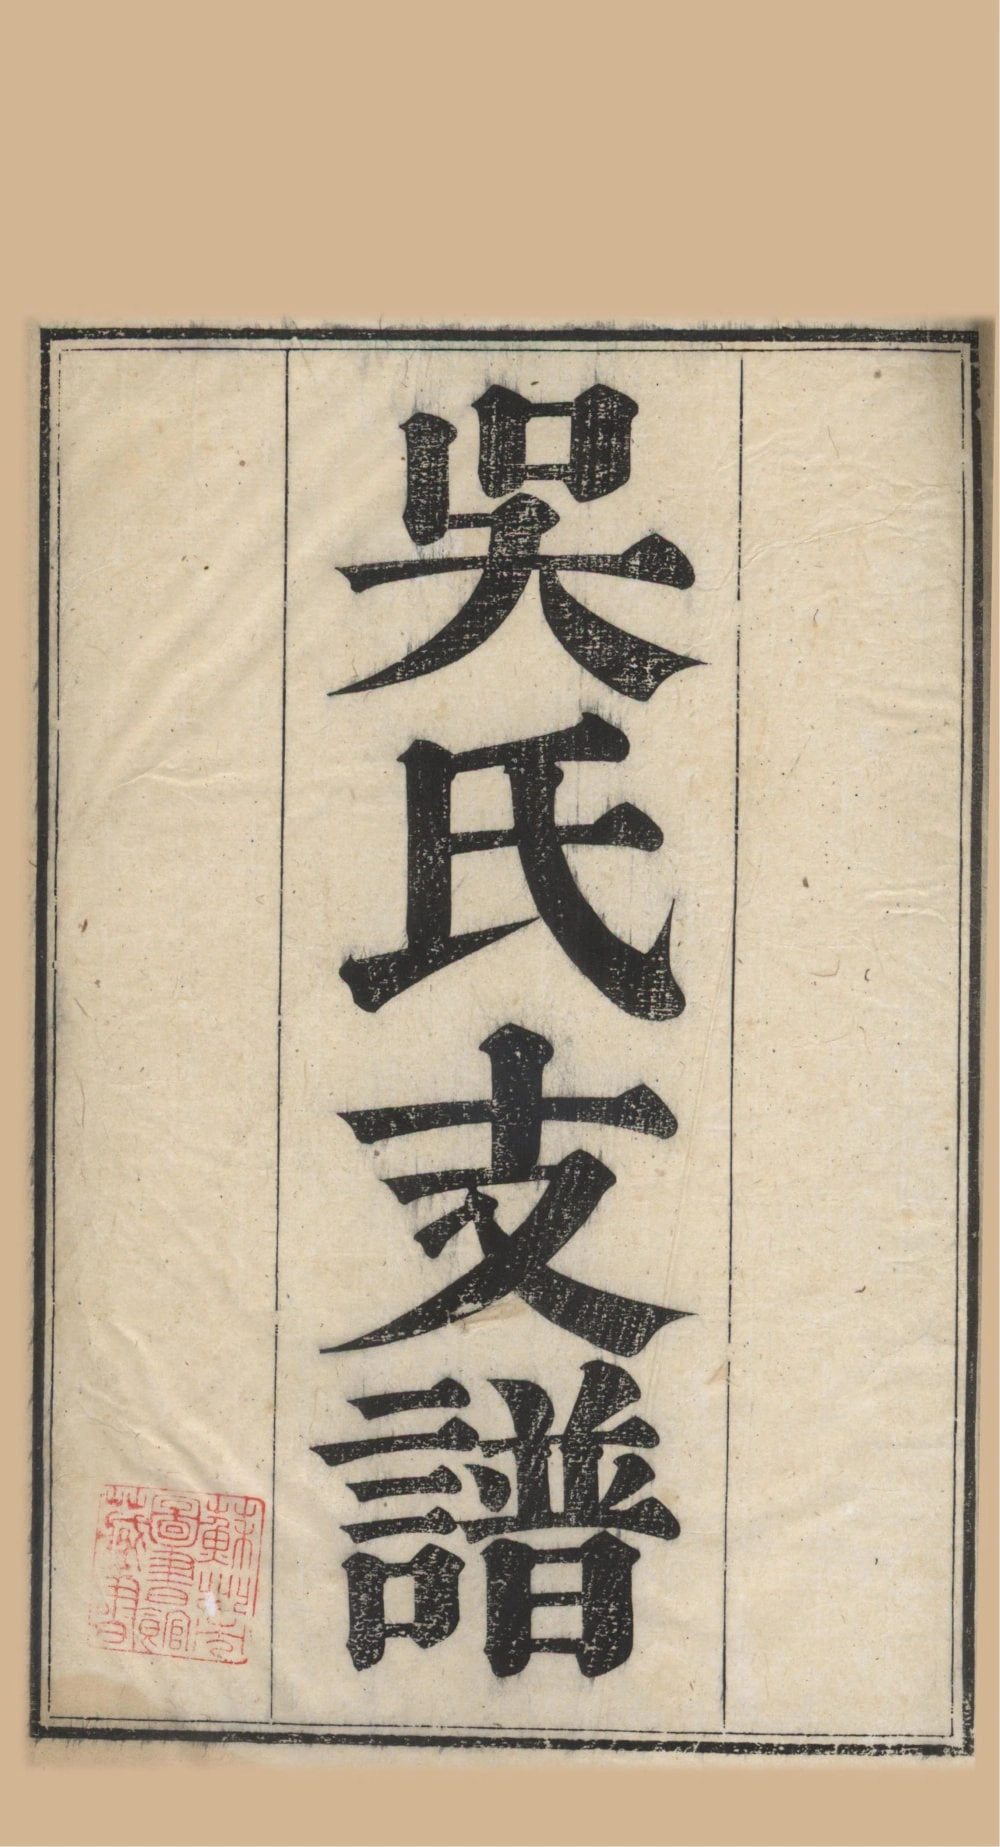 吳氏支譜
蘇州市
圖書館
藏書